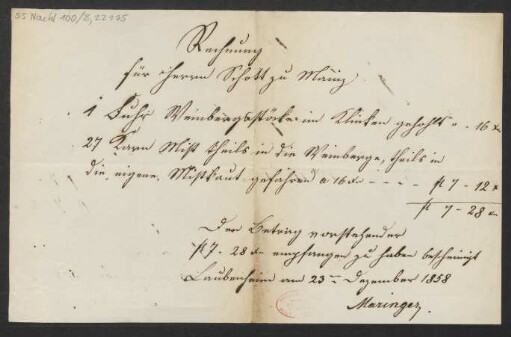 55 Nachl 100/B, 22195
Rechnung
für Herrn Schott zu Mainz
1 Fuhr Weinbergsstöcke im Klinken geholt " . 16 x
27 Karn Mist theils in die Weinberge, theils in
die eigene Mistkaut gefahren a 16 x - - - - fl 7 - 12 x
fl 7 - 28 x
Der Betrag vorstehender
fl 7 - 28 x empfangen zu haben bescheinigt
Laubenheim am 23ten Dezember 1858
Maringer.